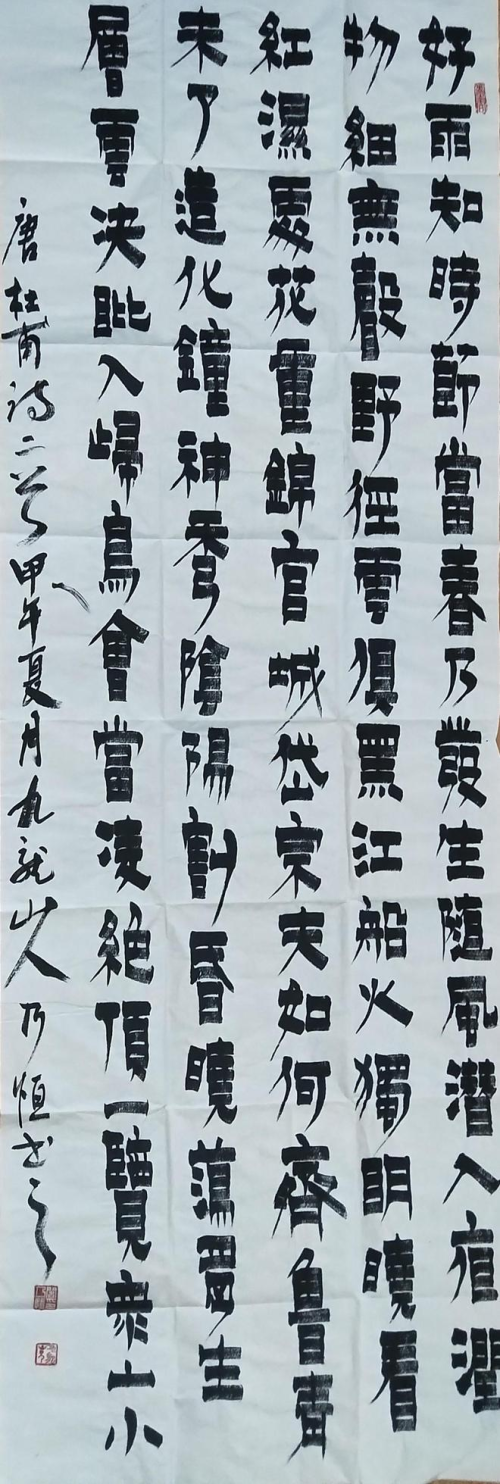 好雨知時節當春乃發生隨風潛入夜潤
物細無聲野徑雲俱黑江船火獨明曉看
紅濕處花重錦官城岱宗夫如何齊魯青
未了造化鐘神秀陰陽割昏曉蕩胷生
層雲決眦入歸鳥會當凌絕頂一覽衆山小
唐杜甫詩二首甲午夏月九龍山人乃恒书之